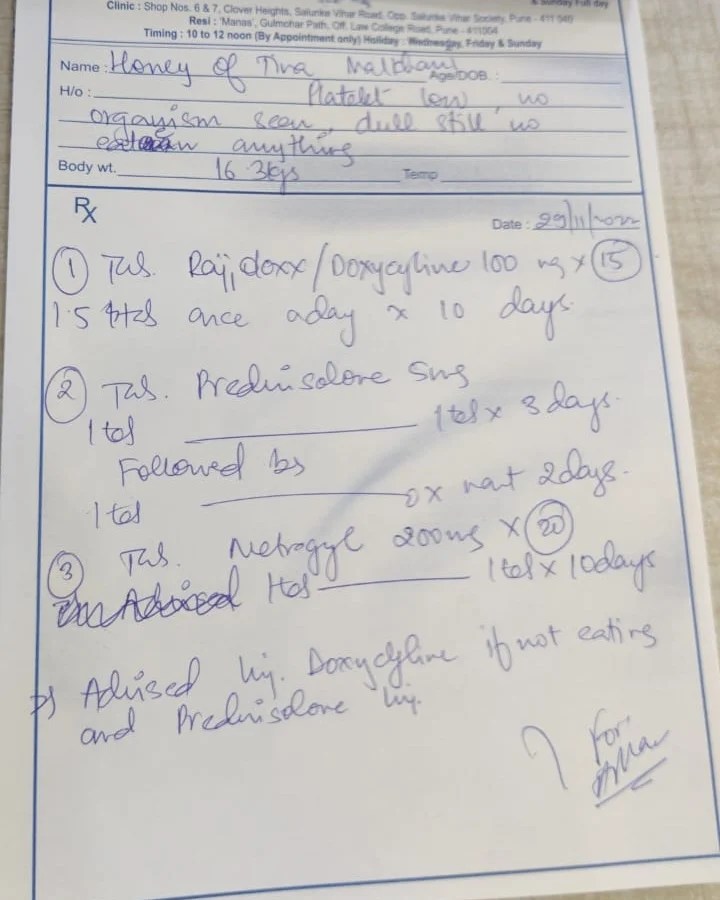 & Sunday Full day
Clinic : Shop Nos. 6 & 7, Clover Heights, Salunke Vihar Road, Opp. Salunke Vihar Society, Pune - 411 040
Resi : 'Manas', Gulmohar Path, Off. Law College Road, Pune - 411004
Timing : 10 to 12 noon (By Appointment only) Holiday : Wednesday, Friday & Sunday
Name : Honey of Tina
Age/DOB. :
H/o : Platelet low, no
organism seen, dull still no
eaten anything
Body wt. 16.3kgs Temp
Rx
Date : 29/11/2022
1 Tab. Doxycycline 100 mg x 15
1.5 tabs once aday x 10 days.
2 Tab. Prednisolone 5mg
1 tab 1 tab x 3 days.
Followed by
1 tab 0 x next 2 days.
3 Tab. Metrogyl 200mg x 20
1 tab 1 tab x 10 days
Advised Inj. Doxycycline if not eating
and Prednisolone Inj.
For.